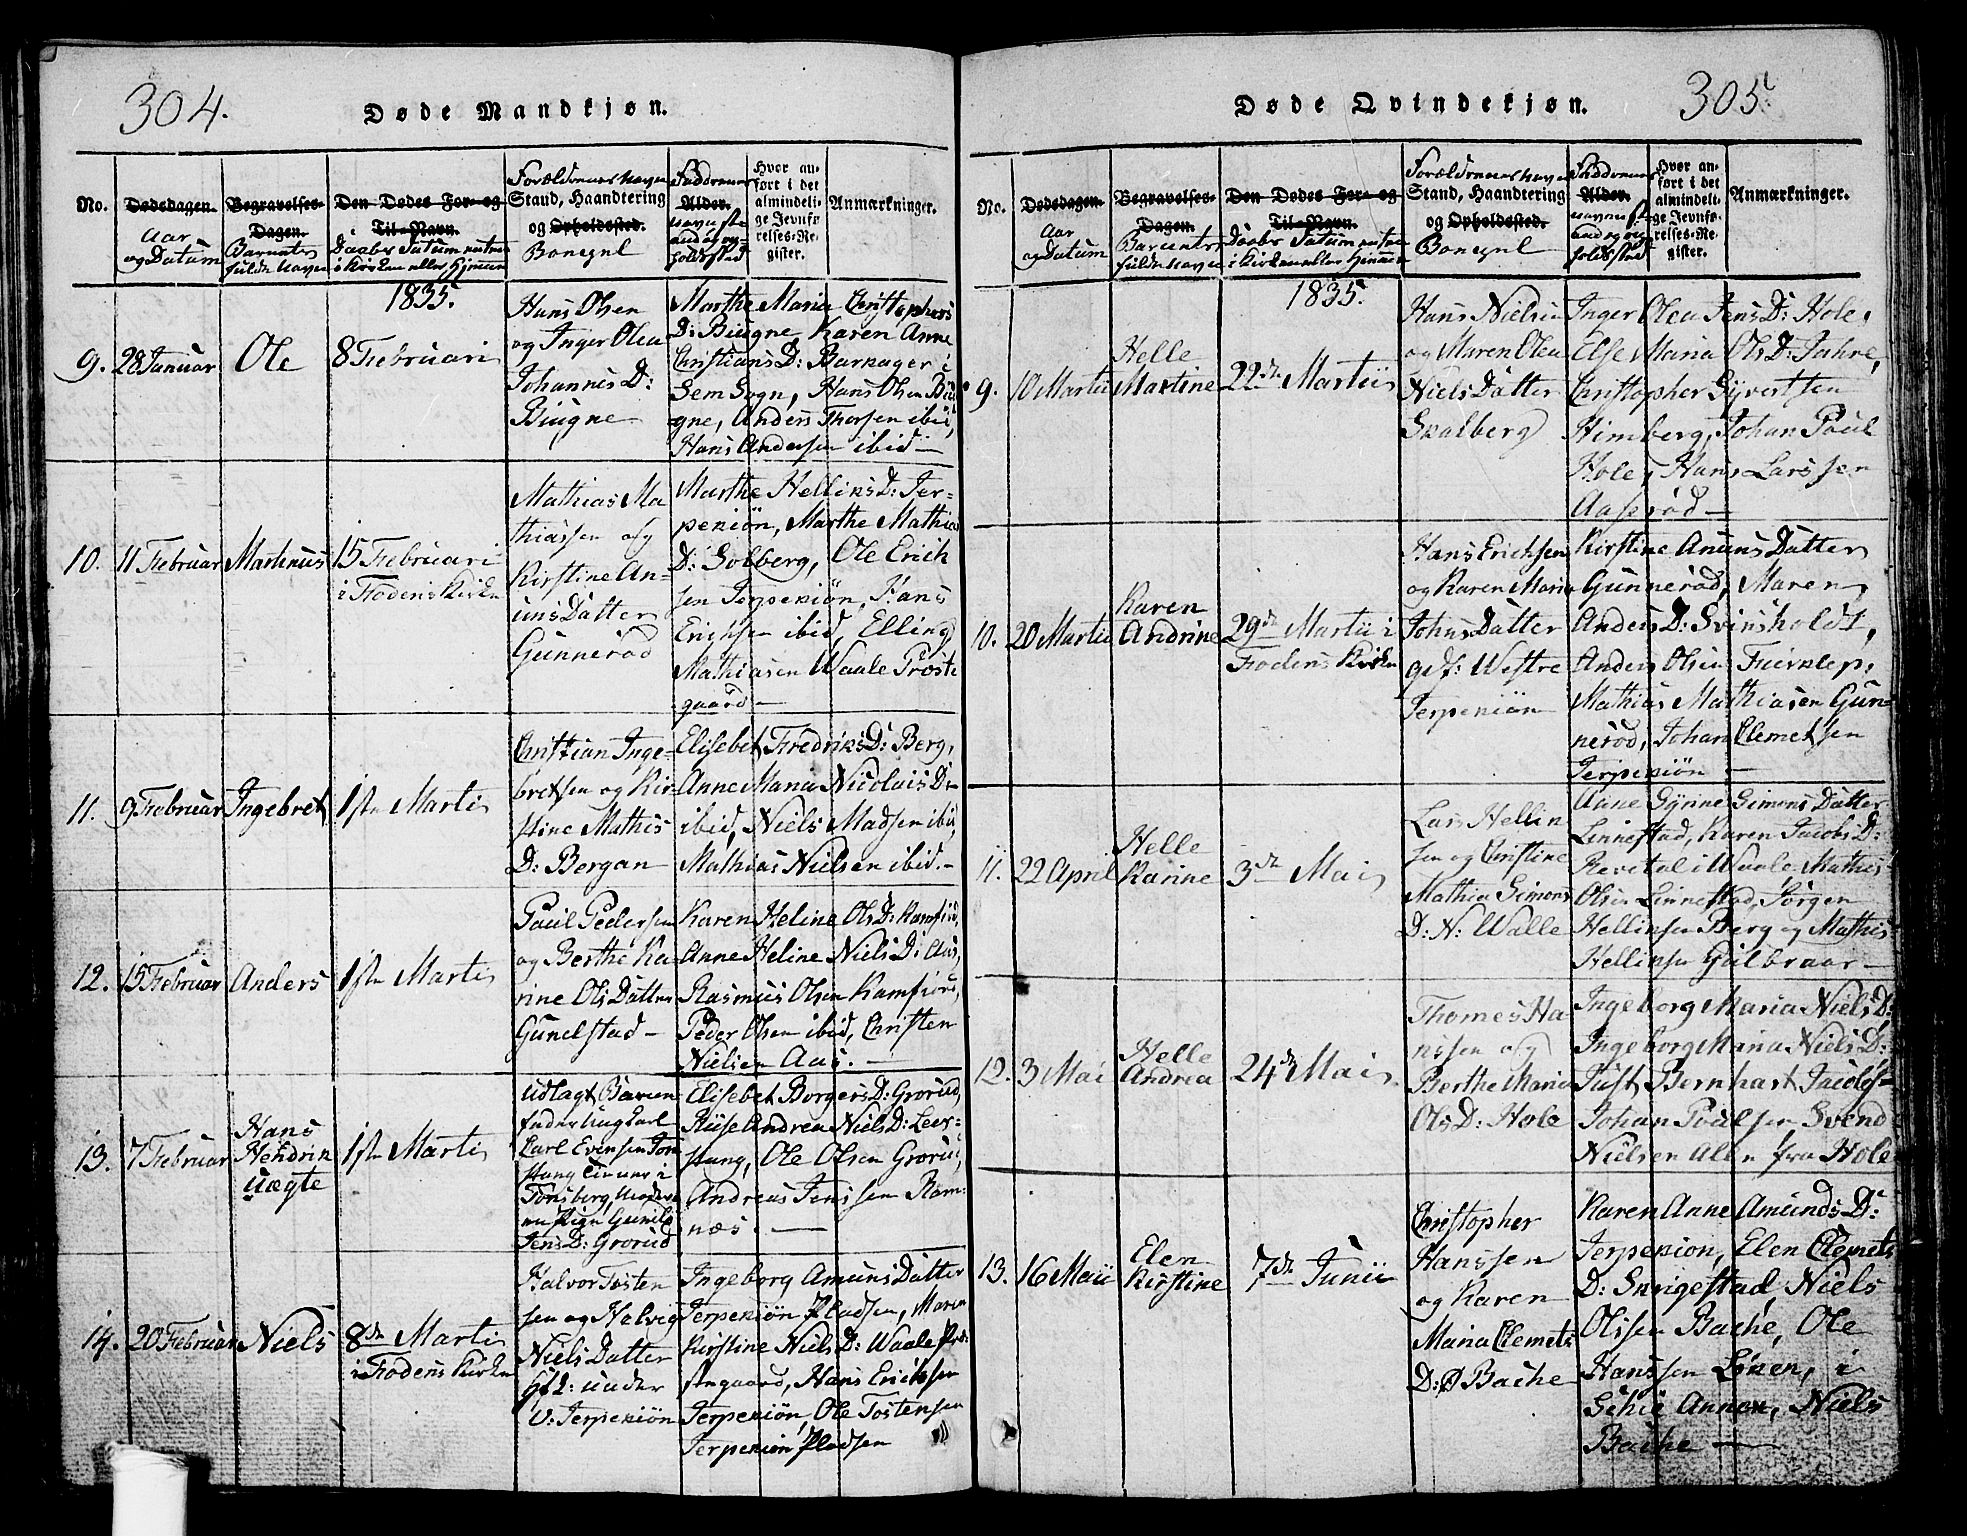 304.
Døde Mandkjøn.
No.
Dødsdagen.
Aar
og Datum
Begravelses-
Dagen.
Barnets
fulde Navn
Den Dødes For- og
Til-Navn.
Daabs Datum enten
i Kirken eller Hjemme
Forældrenes Navn
Stand, Haandtering
og Opholdssted.
Bopæl
Faddernes
Alder.
Hvor an-
ført i det
almindeli-
ge Jevnfø-
relses-Re-
gister.
Anmærkninger.
1835.
9.
28 Januar
Ole
8 Februari
Hans Olsen
og Inger Olea
Johannis D:
Biugne
Marthe Maria Christophers
D: Biugne Karen Anne
Christians D: Barkager i
Sem Sogn, Hans Olsen Biu
gne, Anders Thorsen ibid,
Hans Andersen ibid —
10.
11 Februar
Martinus
15 Februari
i Fodens Kirke
Mathias Ma
thiassen og
Kirstine An-
uns Datter
Gunnerød
Marthe Hellins D: Jer-
pekiön, Marthe Mathia
D: Solberg, Ole Erich
sen Jerpekiön, Hans
Erichsen ibid, Elling
Mathiasen Waale Præste
gaard —
11.
9 Februar
Ingebret
1ste Marti
Christian Inge-
bretsen og Kir-
stine Mathis
D: Bergan
Elisebet Fredriks D: Berg,
Anne Maria Nicolais D:
ibid, Niels Madsen ibid,
Mathias Nielsen ibid. —
12.
15 Februar
Anders
1ste Marti
Paul Pedersen
og Berthe Ka-
rine Ols Datter
Gunelstad —
Karen Heline Ols D: Ramfiord,
Anne Heline Niels D: Aas,
Rasmus Olsen Ramfiord,
Peder Olsen ibid, Christen
Nielsen Aas. —
13.
7 Februar
Hans
Hendrik
uægte
1ste Marti
Udlagt Barne-
fader Ungkarl
Carl Evensen
i
Tønsberg, Moder
Pigen
Jens D: Grorud
Elisebet Borgers D: Grorud,
Andrea Niels D:
Ole Olsen Grorud,
Andreas Jenssen Ram-
næs. —
14.
20 Februar
Niels
8de Marti
i Fodens Kirke
Halvor Tosten
sen og Helvig
Niels Datter
under
V: Jerpekiön
Ingeborg Amuns Datter
Jerpekiön Pladsen, Maren
Kirstine Niels D: Waale Præ-
stegaard, Hans Erichsen
Jerpekiön, Ole Tostensen
Jerpekiön Pladsen
Døde Qvindekjøn.
305.
No.
Dødsdagen.
Aar
og Datum
Begravelses-
Dagen.
Barnets
fulde Navn
Den Dødes For- og
Til-Navn.
Daabs Datum enten
i Kirken eller Hjemme
Forældrenes Navn
Stand, Haandtering
og Opholdssted.
Bopæl
Faddernes
Alder.
Hvor an-
ført i det
almindeli-
ge Jevnfø-
relses-Re-
gister.
Anmærkninger.
1835.
9.
10 Martii
Helle
Martine
22de Martii
Hans Nielsen
og Maren Olea
Niels Datter
Skalberg
Inger Olea Jens D: Hole,
Else Maria Ols D: Jahre,
Christopher Syvertsen
Himberg, Johan Paul
Hole, Hans Larssen
Aaserød —
10.
20 Martii
Karen
Andrine
29de Martii i
Fodens Kirke
Hans Erichsen
og Karen Maria
Johns Datter
Westre
Jerpekiön
Kirstine Anuns Datter
Gunnerød, Maren
Anders D: Svinsholdt,
Anders Olsen
Mathias Mathiasen Gun-
nerød, Johan Clemetsen
Jerpekiön —
11.
22 April
Helle
Karine
3de Mai
Lars Hellin
sen og Christine
Mathea Simons
D: N: Walle
Anne Gurine Simons Datter
Linnestad, Karen Jacobs D:
Revetal i Waale Mathis
Olsen Linnestad, Jörgen
Hellinsen Berg og Mathis
Hellinsen Gulbraar —
12.
3 Mai
Helle
Andrea
24de Mai
Thomes Ha
nssen og
Berthe Maria
Ols D: Hole
Ingeborg Maria Niels D:
Ingeborg Maria Niels D:
Just Bernhart Jacobs-
Johan Poulsen Svend
Nielsen Alle fra Hole
13.
16 Maii
Elen
Kirstine
7de Junii
Christopher
Hanssen
og Karen
Maria Clemets
D: Bache
Karen Anne Amunds D:
Jerpekiön, Elen Clemets
D: Snigestad, Niels
Olssen Bache, Ole
Hanssen i
Schie Annex, Niels
Bache —